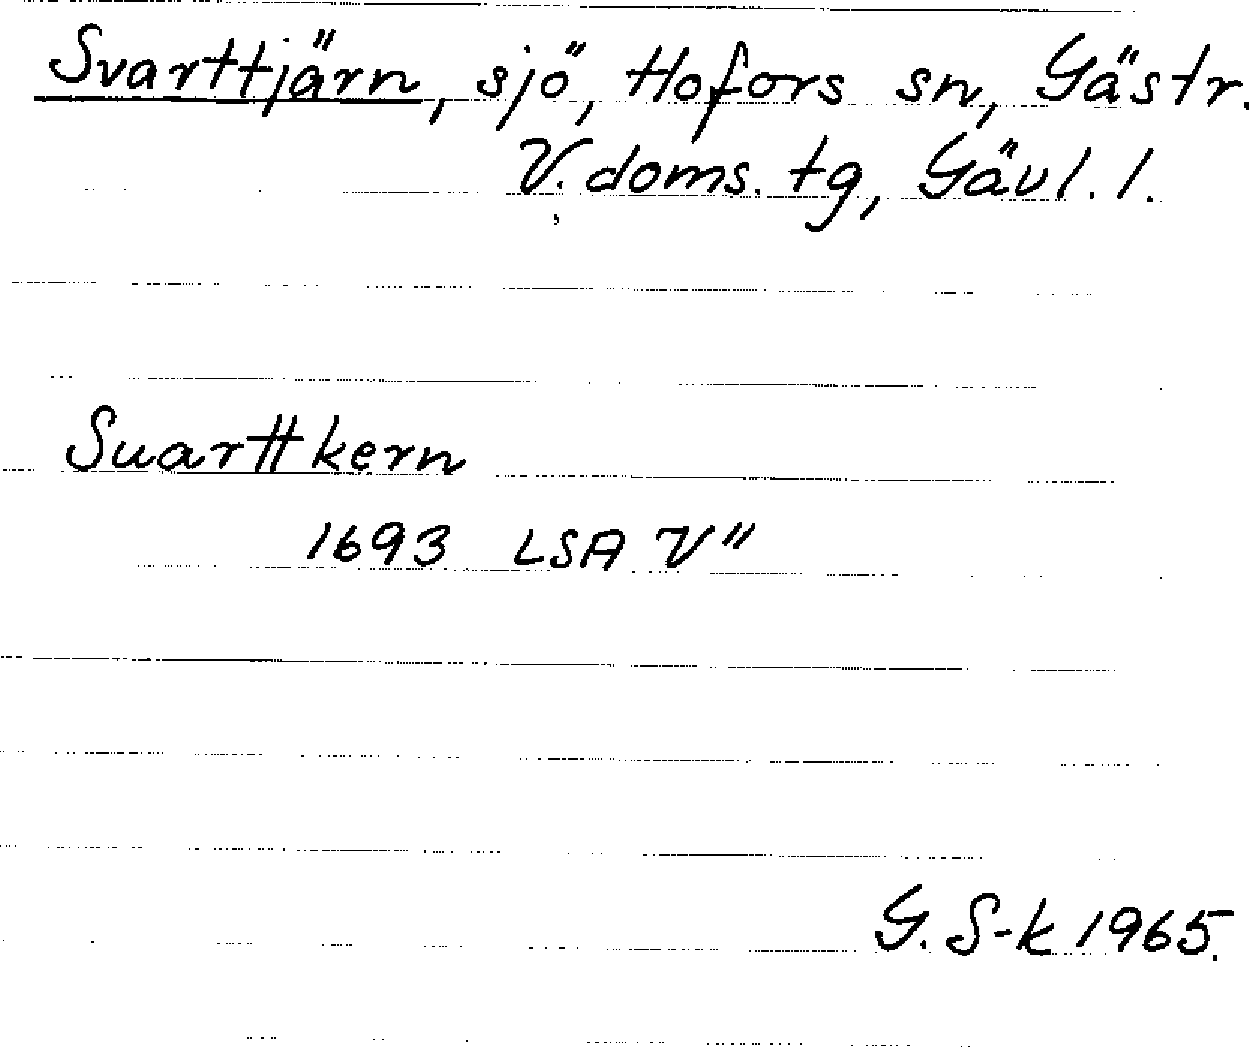 Svarttjärn, sjö, Hofors sn, Gästr.
V. doms. tg, Gävl. l.
Suarttkern
1693 LSA V"
G. S-k 1965.